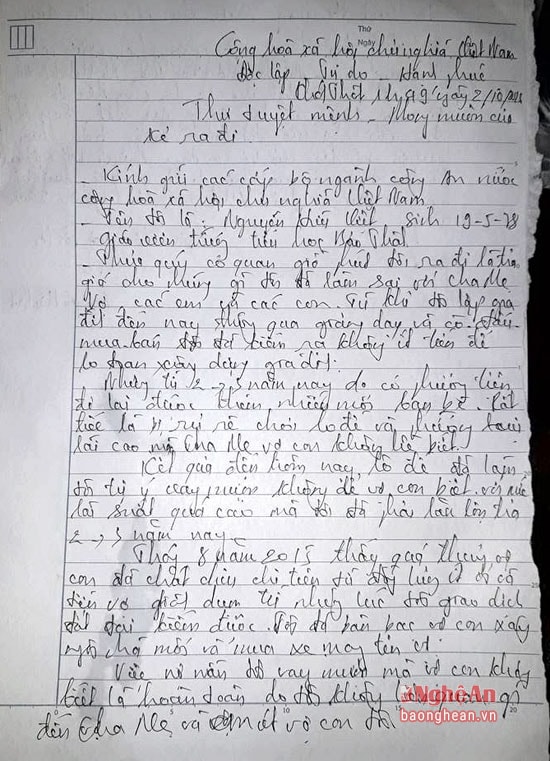 Thứ
Ngày
Cộng hoà xã hội chủ nghĩa Việt Nam
Độc lập _ Tự do _ Hạnh phúc
ngày 2/10/
Thư tuyệt mệnh _ Mong muốn của
kẻ ra đi
_ Kính gửi các cấp bộ ngành công An nước
cộng hoà xã hội chủ nghĩa Việt Nam
_ Tên tôi là: Nguyễn Việt sinh 19-5-78
Giáo viên trường tiểu học Bảo Thắl
_ Thưa quý cơ quan giờ phút tôi ra đi là trả
giá cho những gì tôi đã làm sai với cha Mẹ
Vợ các em và các con. Từ khi tôi lập gia
đình đến nay thông qua giảng dạy và có
mua bán tôi đã kiếm ra không ít tiền để
lo toan xây dựng gia đình.
Nhưng từ 2 → 3 năm nay do có phương tiện
đi lại được thêm nhiều mối bạn bè. Rất
tiếc là bị rủ rê chơi lô đề và
lãi cao mà Cha Mẹ vợ con không hề biết.
Kết quả đến hôm nay, lô đề đã làm
tôi tự ý vay mượn không để vợ con biết. với mức
lãi suất quá cao mà tôi đã phải
2 → 3 năm nay
Tháng 8 năm 2015 thấy quá thương vợ
con đã chắt chiu chi tiền
tiền vợ giành dụm từ những lúc tôi giao dịch
đất đai kiếm được. Tôi đã bàn bạc vợ con xây
ngôi nhà mới và mua xe máy
Việc nợ nần tôi vay mượn mà vợ con không
biết là hoàn toàn do tôi không liên quan gì
đến Cha Mẹ và vợ con tôi.
NghệAn
baonghean.vn